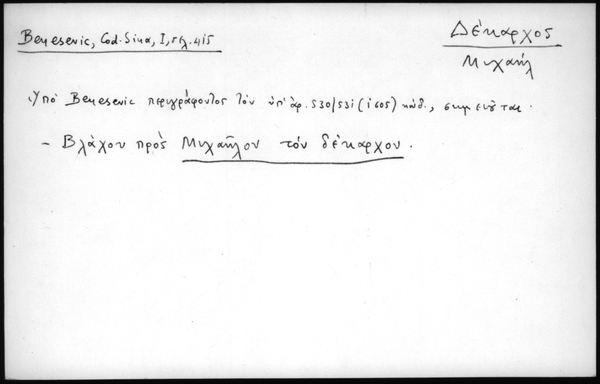 Benesevic, Cod. Sina, I, σελ. 415
Δέκαρχος
Μιχαήλ
Υπό Benesevic περιγράφοντος τον υπ' αρ. 530/531 (1605) κώδ., σημειούται.
- Βλάχου πρὸς Μιχαῆλον τόν δέκαρχον.